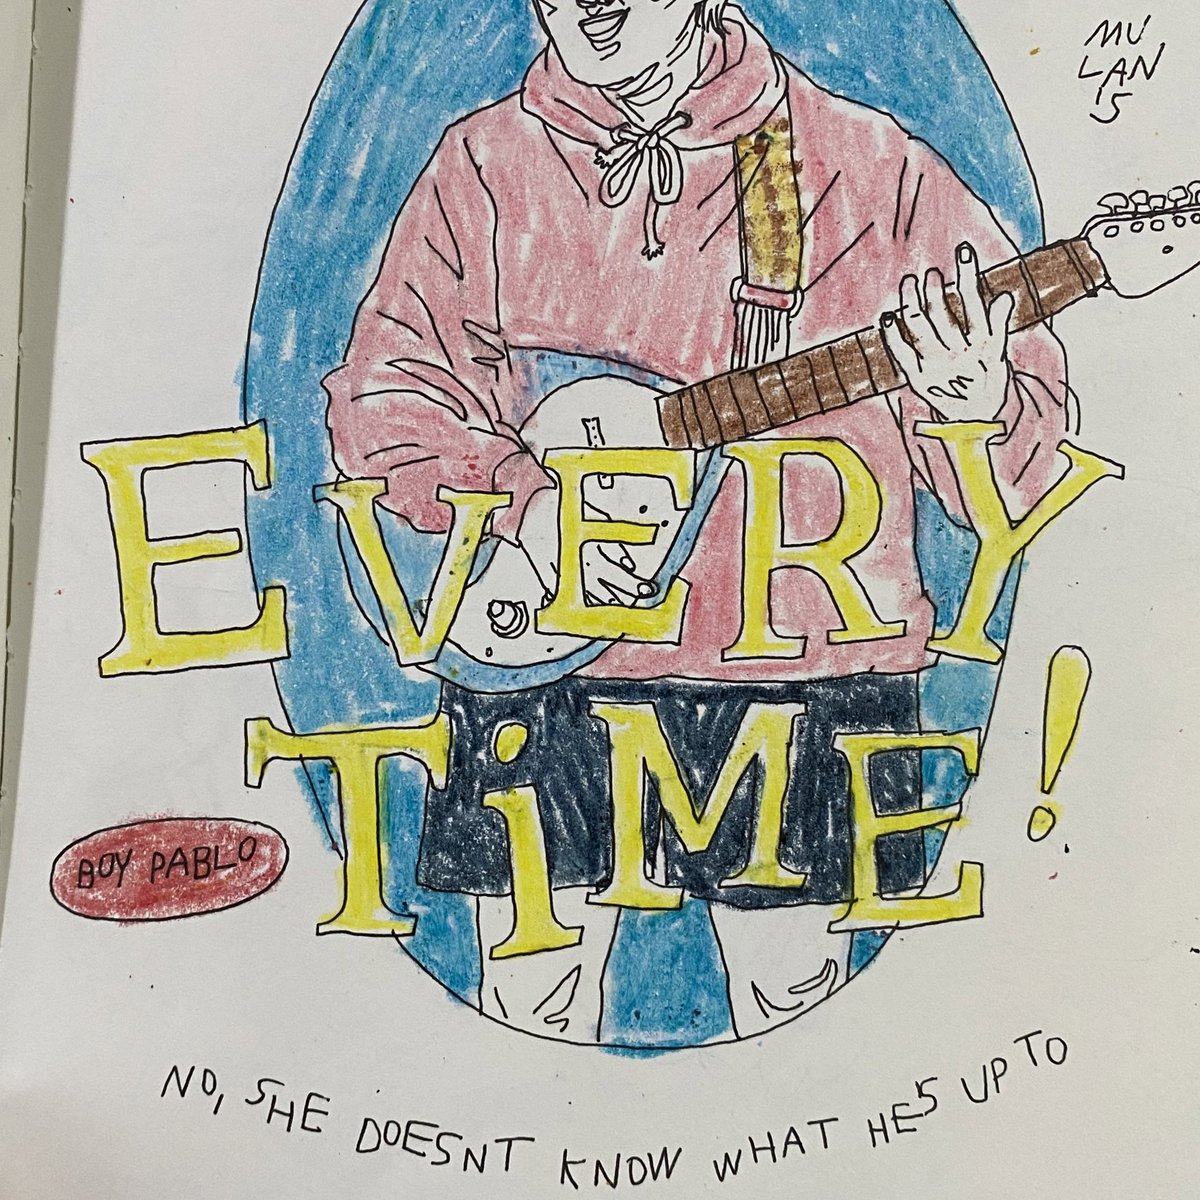 MU
LAN
'S
EVERY
TiME!
BOY PABLO
NO, SHE DOESNT KNOW WHAT HE'S UP TO